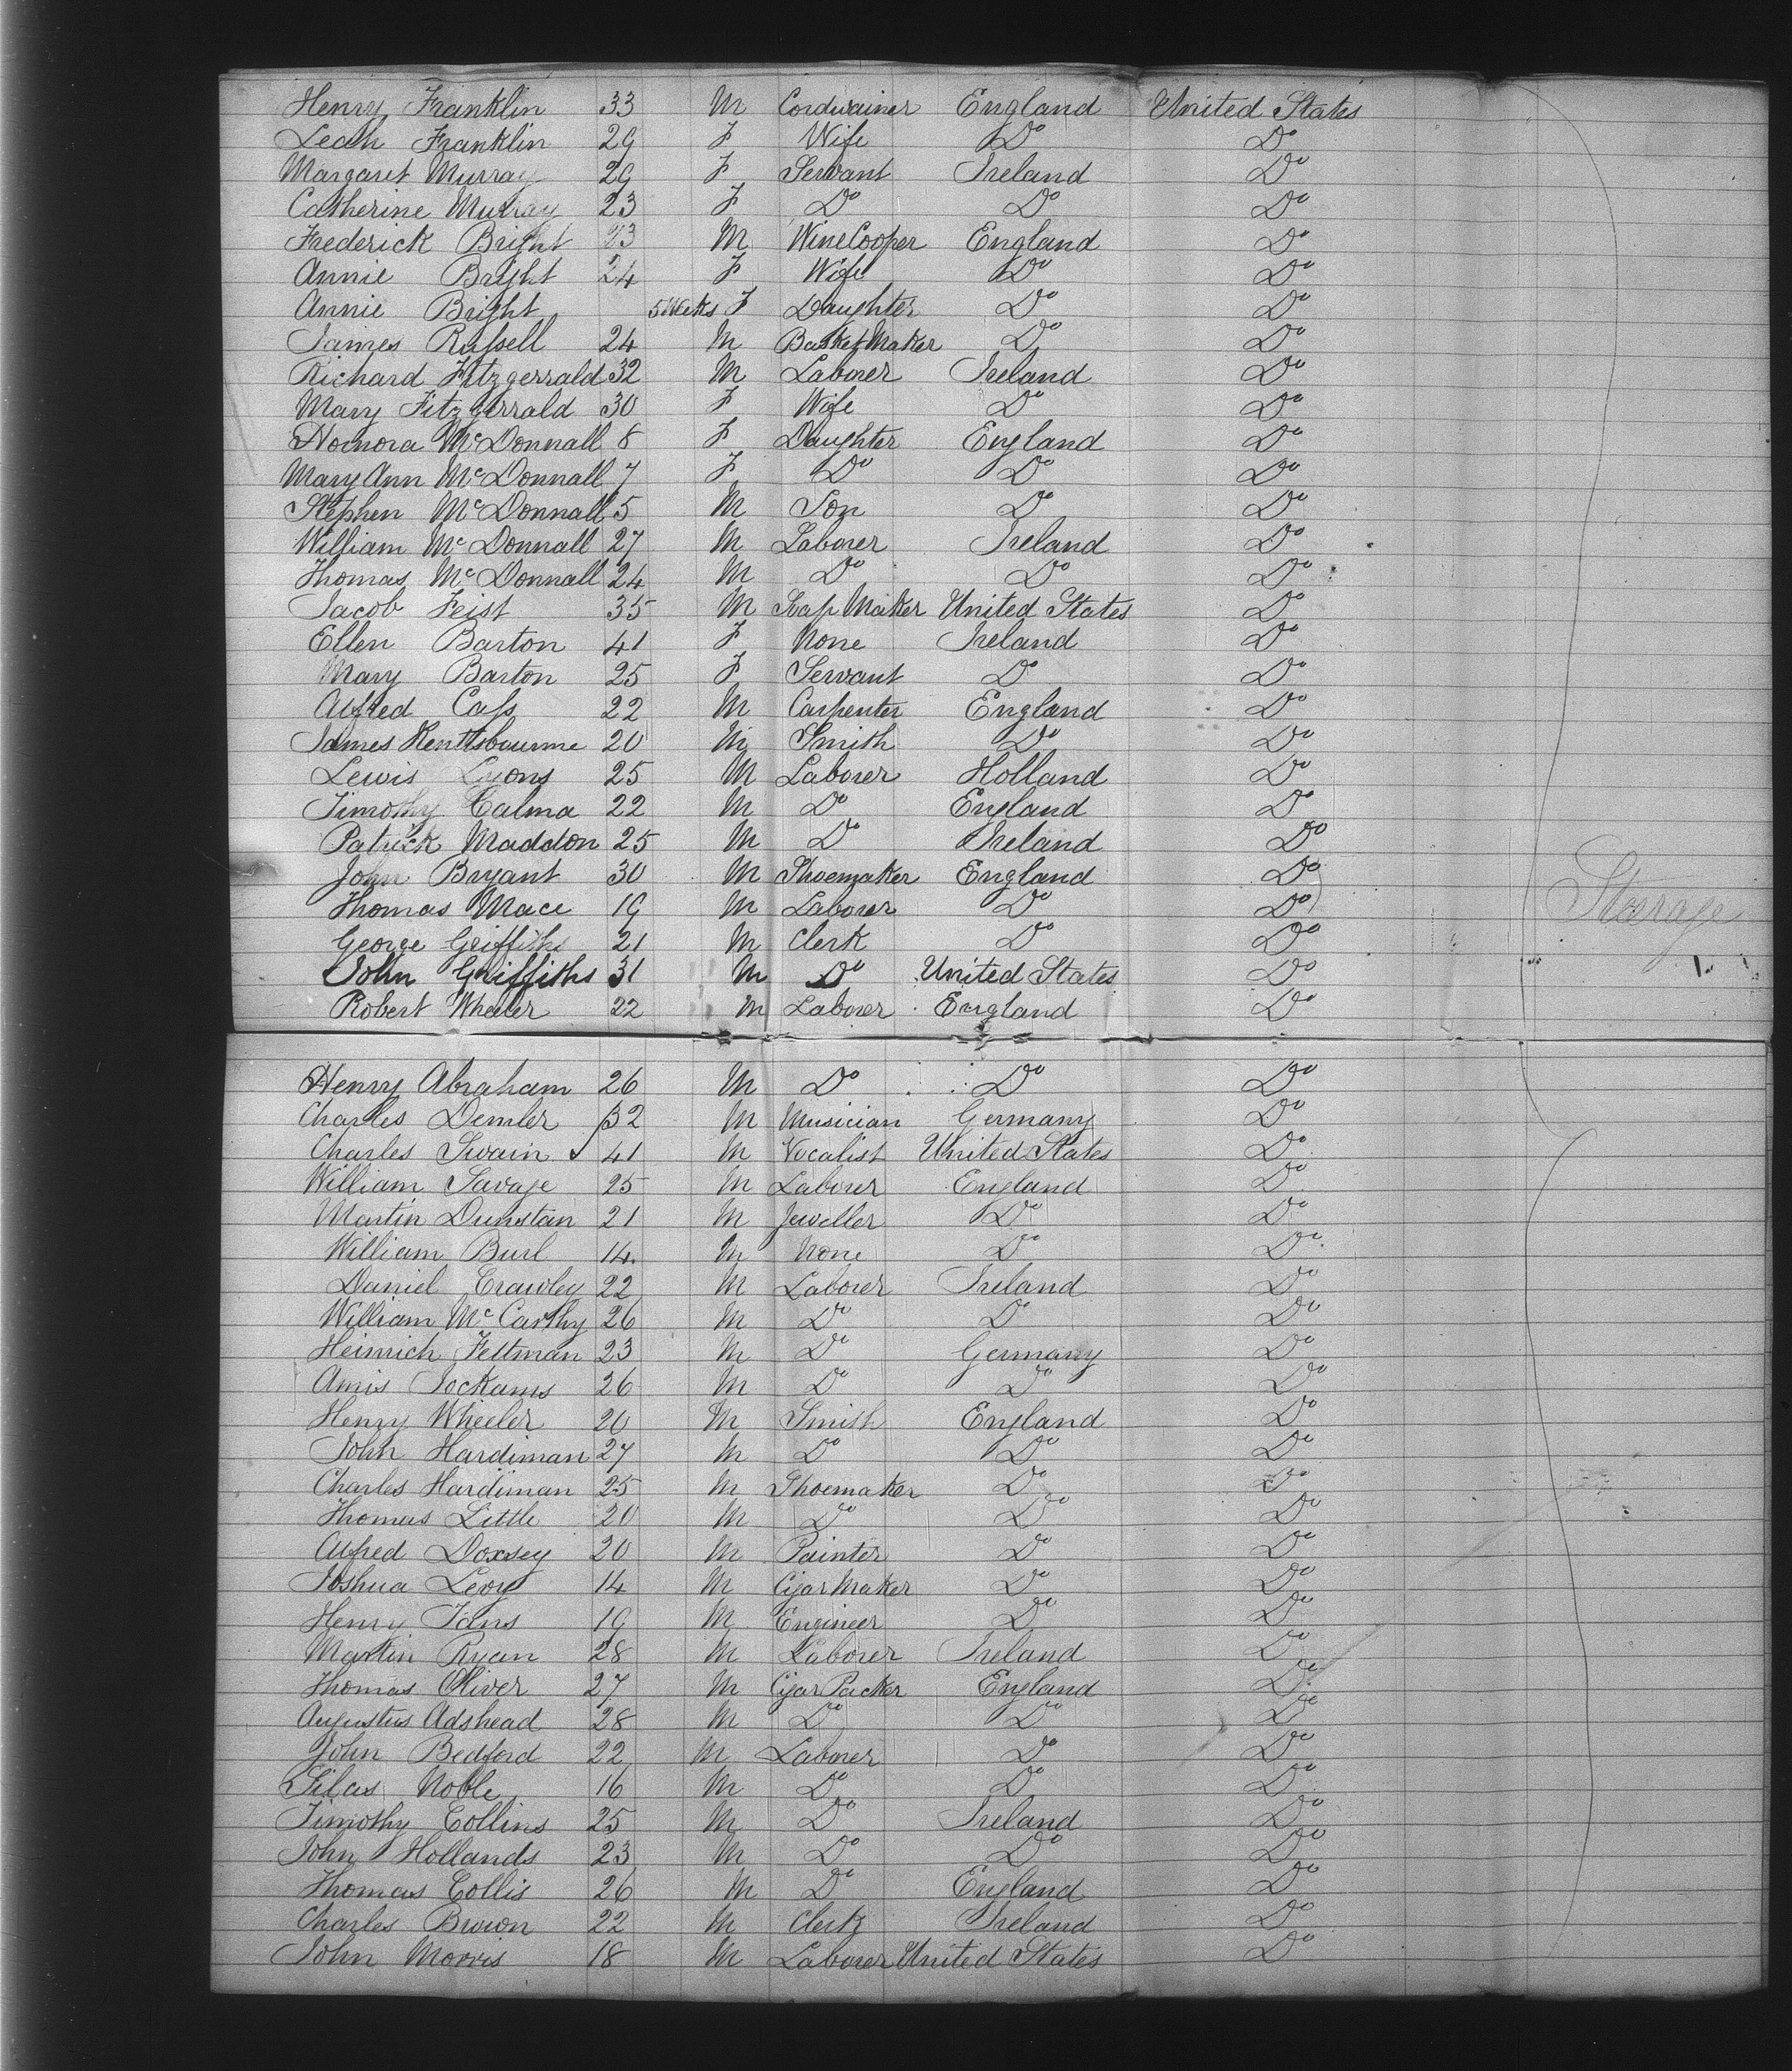 Henry Franklin 33 M Cordwainer England United States
Leah Franklin 29 F Wife Do Do
Margaret Murray 29 F Servant Ireland Do
Catherine Murray 23 F Do Do Do
Frederick Bright 23 M Wine Cooper England Do
Annie Bright 24 F Wife Do Do
Annie Bright 5 Weeks F Daughter Do Do
James Russell 24 M Basket Maker Do Do
Richard Fitzgerrald 32 M Laborer Ireland Do
Mary Fitzgerrald 30 F Wife Do Do
Honora McDonnall 8 F Daughter England Do
Mary Ann McDonnall 7 F Do Do Do
Stephen McDonnall 5 M Son Do Do
William McDonnall 27 M Laborer Ireland Do
Thomas McDonnall 24 M Do Do Do
Jacob Feist 35 M Soap Maker United States Do
Ellen Barton 41 F None Ireland Do
Mary Barton 25 F Servant Do Do
Alfred Cass 22 M Carpenter England Do
James 20 M Smith Do Do
Lewis Lyons 25 M Laborer Holland Do
Timothy Calma 22 M Do England Do
Patrick Maddon 25 M Do Ireland Do
John Bryant 30 M Shoemaker England Do
Thomas Mace 19 M Laborer Do Do
Steerage
George Griffiths 21 M Clerk Do Do
John Griffiths 31 M Do United States Do
Robert Wheeler 22 M Laborer England Do
Henry Abraham 26 M Do Do Do
Charles Demler 32 M Musician Germany Do
Charles Swain 41 M Vocalist United States Do
William Savage 25 M Laborer England Do
Martin Dunstan 21 M Jeweller Do Do
William Burl 14 M None Do Do
Daniel Crawley 22 M Laborer Ireland Do
William McCarthy 26 M Do Do Do
Heinrich Feltman 23 M Do Germany Do
Amis Jockams 26 M Do Do Do
Henry Wheeler 20 M Smith England Do
John Hardiman 27 M Do Do Do
Charles Hardiman 25 M Shoemaker Do Do
Thomas Little 20 M Do Do Do
Alfred Doxsey 20 M Painter Do Do
Joshua Levy 14 M Cigar Maker Do Do
Henry Johns 19 M Engineer Do Do
Martin Ryan 28 M Laborer Ireland Do
Thomas Oliver 27 M Cigar Packer England Do
Augustus Adshead 28 M Do Do Do
John Bedford 22 M Laborer Do Do
Silas Noble 16 M Do Do Do
Timothy Collins 25 M Do Ireland Do
John Hollands 23 M Do Do Do
Thomas Collis 26 M Do England Do
Charles Brown 22 M Clerk Ireland Do
John Morris 18 M Laborer United States Do